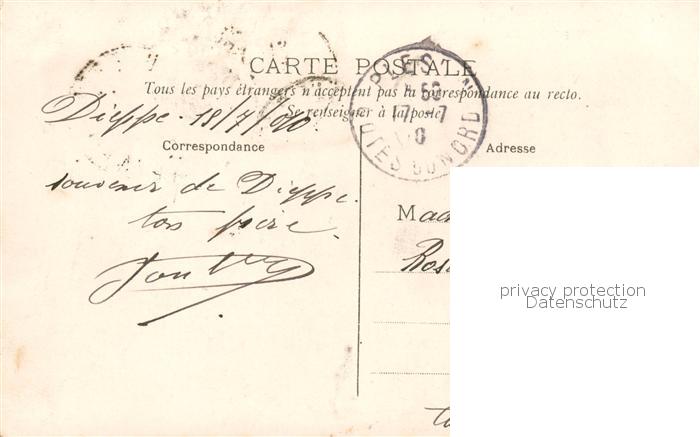 CARTE POSTALE
Tous les pays étrangers n'acceptent pas la correspondance au recto.
Se renseigner à la poste.
Dieppe 18/7/
Correspondance
Adresse
souvenir de Dieppe.
ton père.
COTES DU NORD
17 - 7
Mad
Ros
privacy protection
Datenschutz